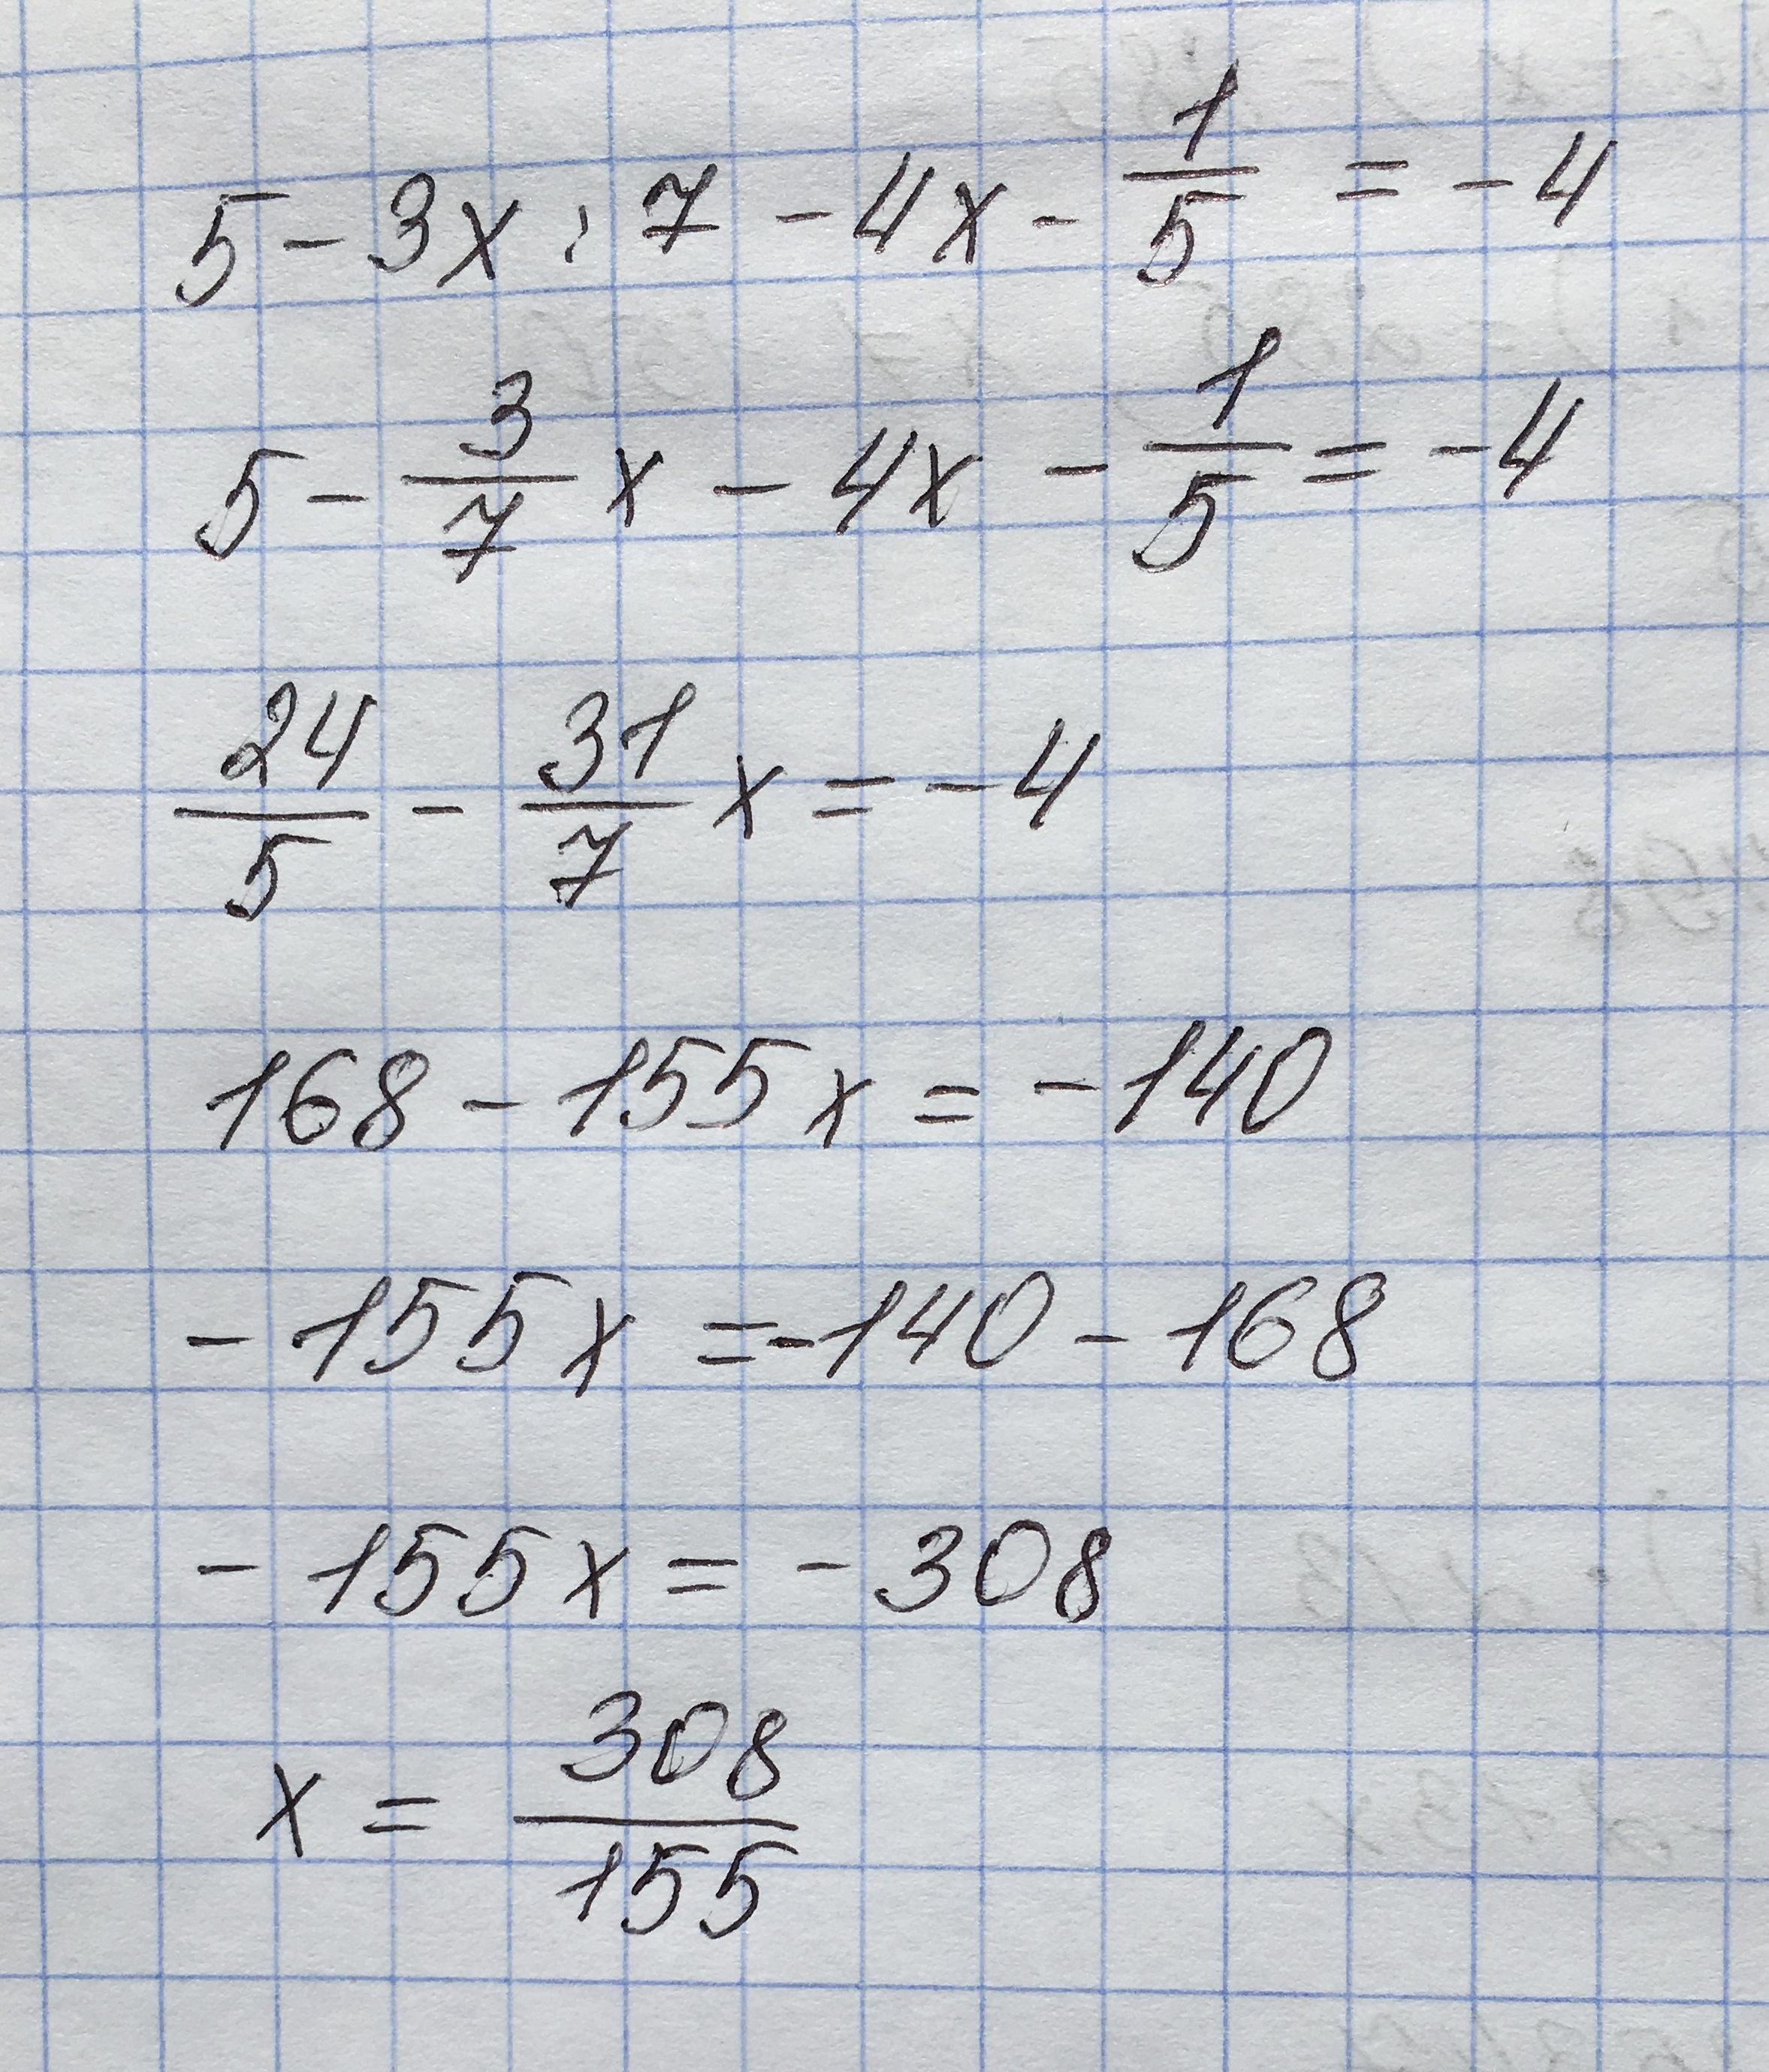 5 - 3x : 7 - 4x - 1/5 = -4
5 - 3/7 x - 4x - 1/5 = -4
24/5 - 31/7 x = -4
168 - 155x = -140
- 155x = -140 - 168
- 155x = - 308
x = 308/155